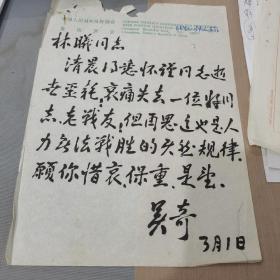 林曦同志
清晨得悉怀谨同志逝
世噩耗,哀痛失去一位好同
志、老战友,但再思这也是人
力无法战胜的自然规律,
愿你惜哀,保重,是望。
吴奇
3月1日